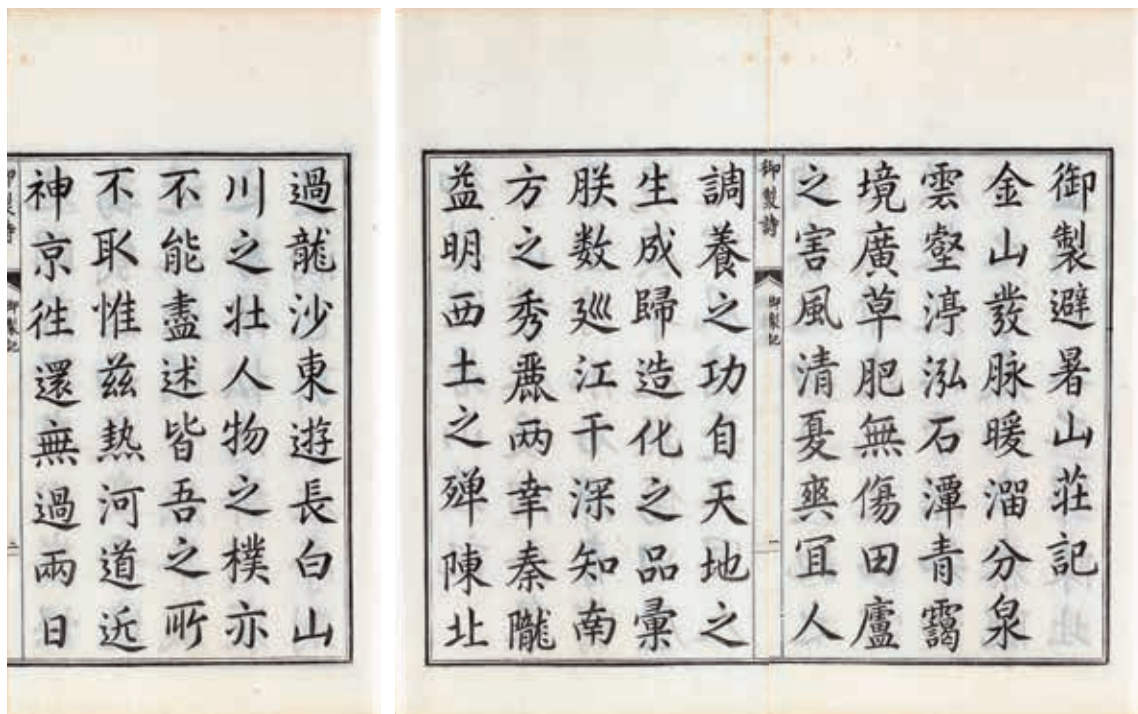 御製避暑山莊記
金山發脉暖溜分泉
雲壑渟泓石潭青靄
境廣草肥無傷田廬
之害風清夏爽宜人
御製詩
御製記
一
調養之功自天地之
生成歸造化之品彙
朕数廵江干深知南
方之秀麗两幸秦隴
益明西土之殫陳北
過龍沙東遊長白山
川之壮人物之樸亦
不能盡述皆吾之所
不取惟兹熱河道近
神京徃還無過兩日
御製詩
御製記
二